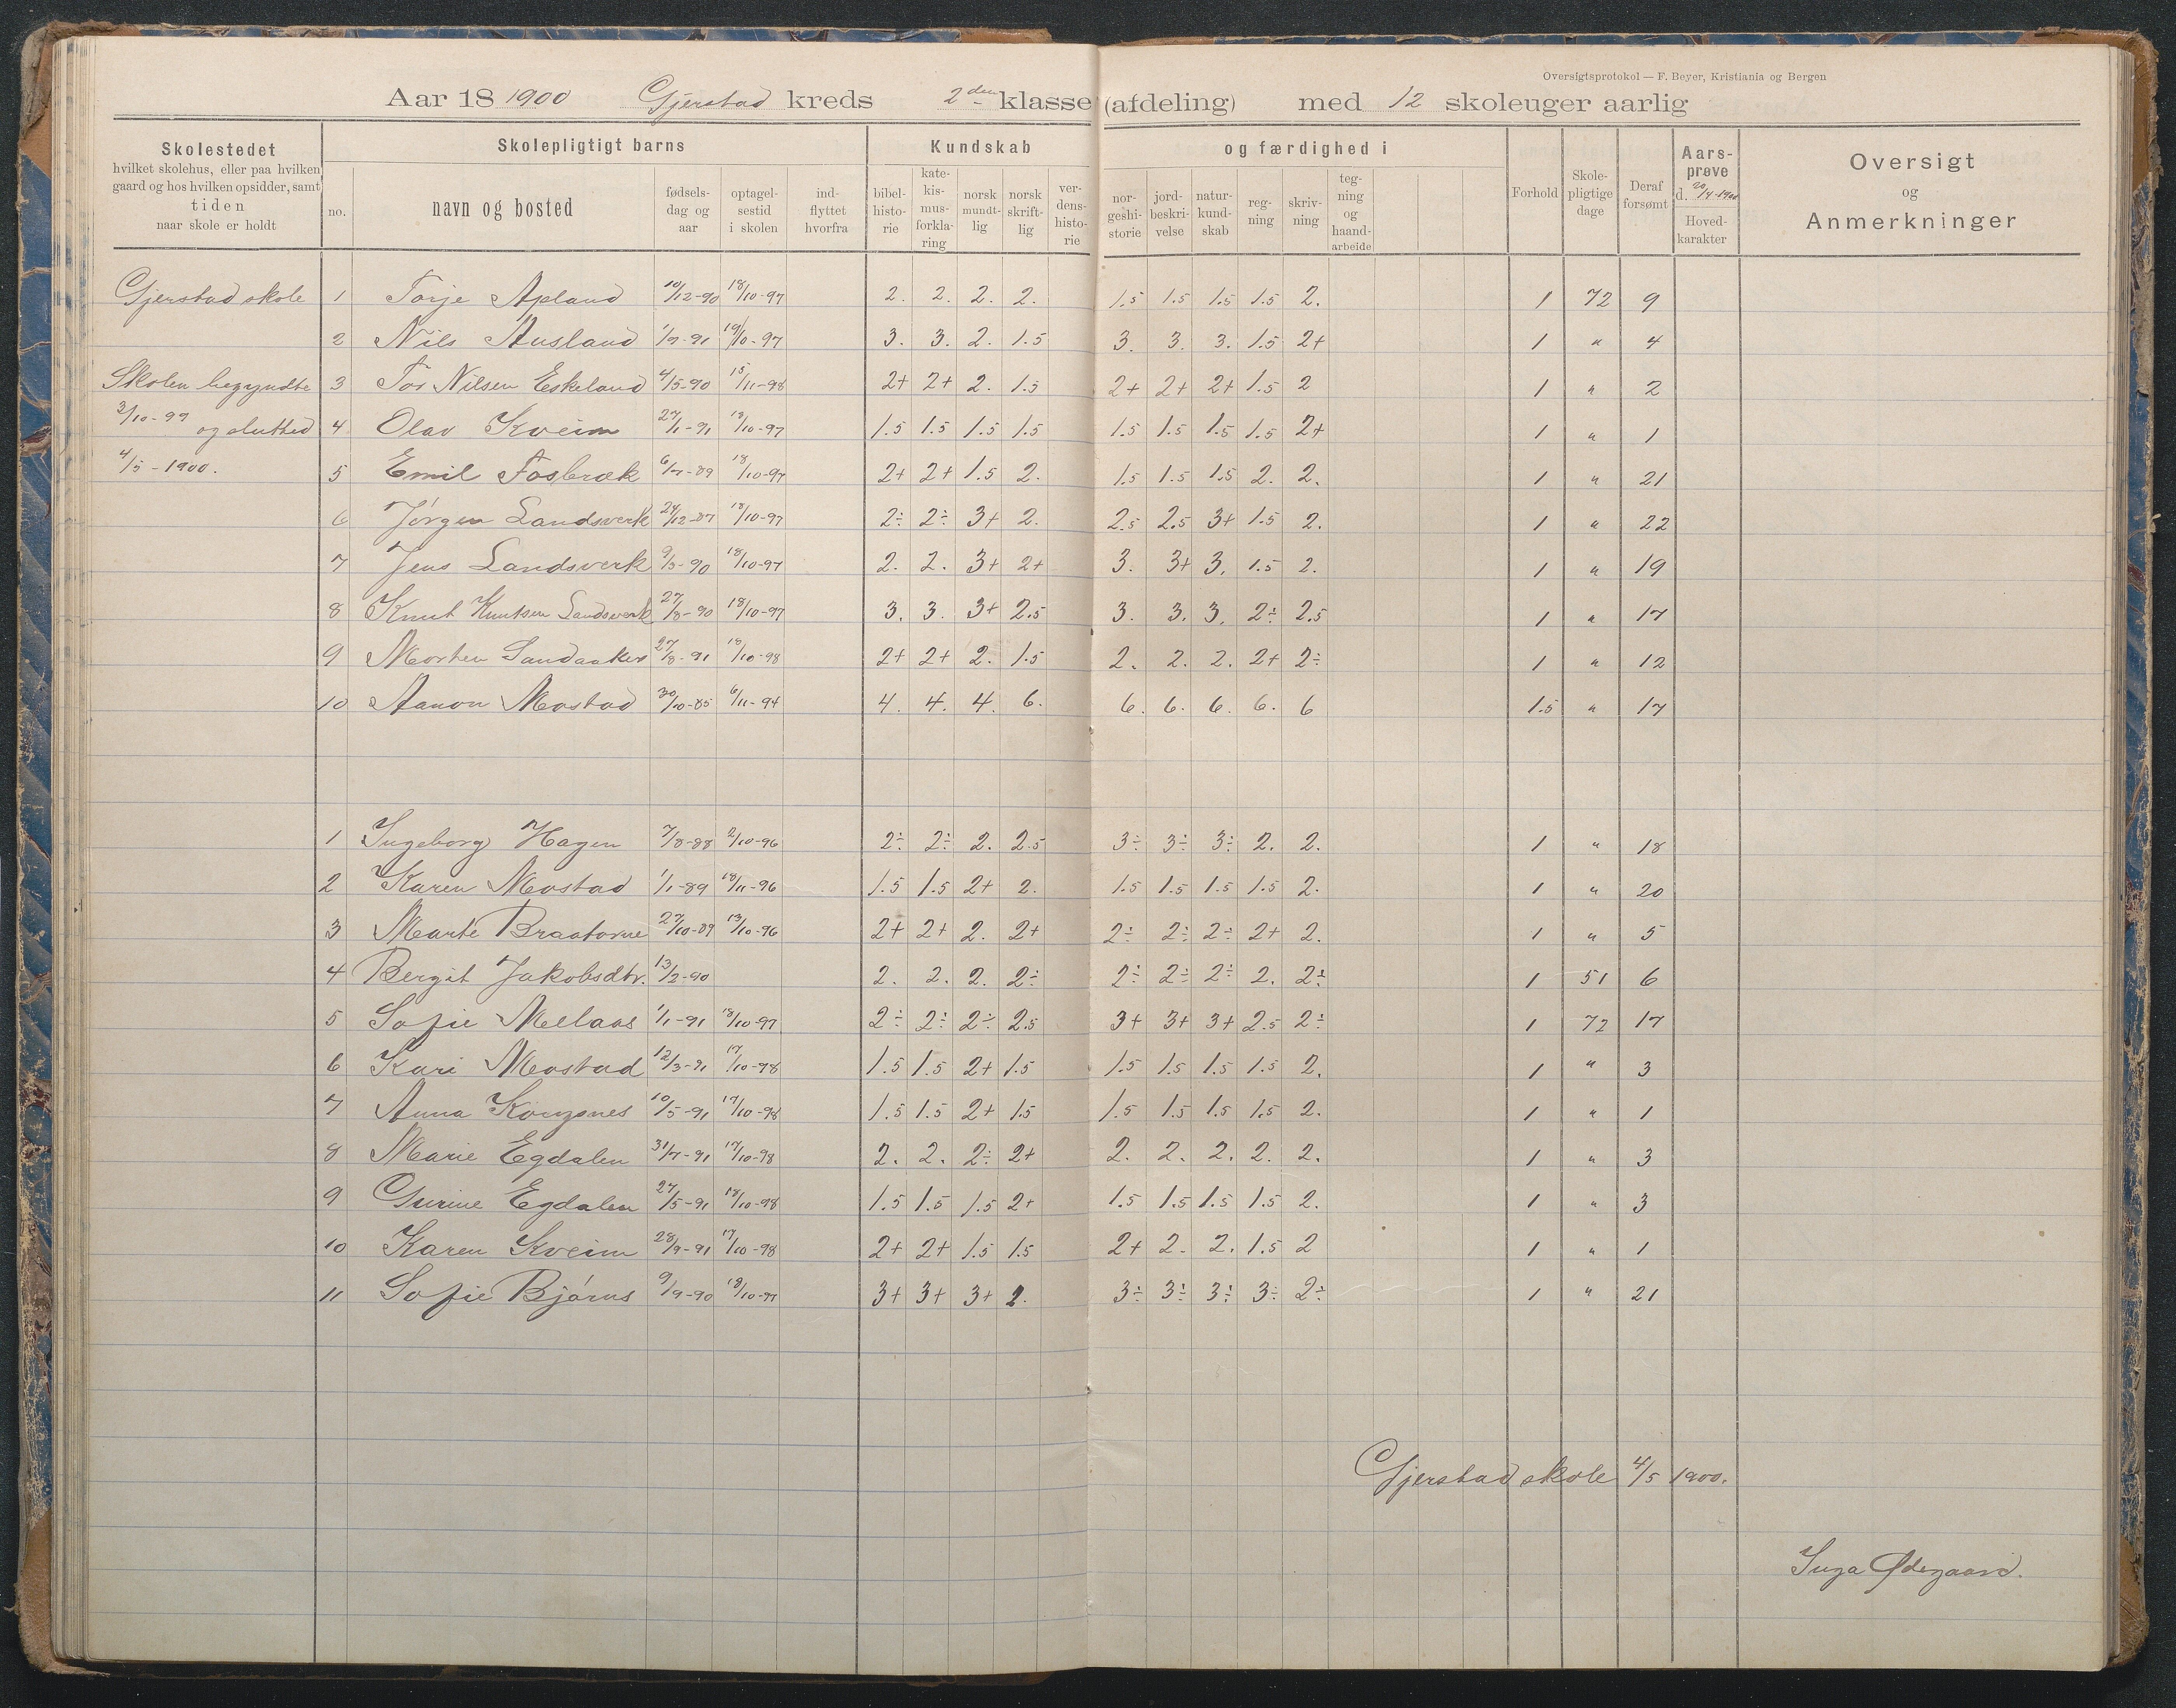 Oversigtsprotokol — F. Beyer, Kristiania og Bergen
Aar 18 1900 Gjerstad kreds 2den klasse (afdeling) med 12 skoleuger aarlig
Skolestedet hvilket skolehus, eller paa hvilken gaard og hos hvilken opsidder, samt tiden naar skole er holdt
Skolepligtigt barns
no. navn og bosted fødsels-dag og aar optagel-sestid i skolen ind-flyttet hvorfra
Kundskab og færdighed i
bibel-histo-rie kate-kis-mus-forkla-ring norsk mundt-lig norsk skrift-lig ver-dens-histo-rie nor-geshi-storie jord-beskri-velse natur-kund-skab reg-ning skriv-ning teg-ning og haand-arbeide
Forhold Skole-pligtige dage Deraf forsømt Aars-prøve d. 20/4-1900 Hoved-karakter
Oversigt og Anmerkninger
Gjerstad skole 1 Torje Apland 10/12-90 18/10-97 2. 2. 2. 2. 1.5 1.5 1.5 1.5 2. 1 72 9
2 Nils Ausland 1/7-91 19/10-97 3. 3. 2. 1.5 3. 3. 3. 1.5 2+ 1 " 4
Skolen begyndte 3 Tor Nilsen Eskeland 4/5-90 15/11-98 2+ 2+ 2. 1.5 2+ 2+ 2+ 1.5 2 1 " 2
3/10-99 og slutted 4 Olav Kveim 27/1-91 18/10-97 1.5 1.5 1.5 1.5 1.5 1.5 1.5 1.5 2+ 1 " 1
4/5-1900. 5 Emil Fosbræk 6/7-89 18/10-97 2+ 2+ 1.5 2. 1.5 1.5 1.5 2. 2. 1 " 21
6 Jørgen Landsverk 24/12-87 18/10-97 2÷ 2÷ 3+ 2. 2.5 2.5 3+ 1.5 2. 1 " 22
7 Jens Landsverk 9/3-90 18/10-97 2. 2. 3+ 2+ 3. 3+ 3. 1.5 2. 1 " 19
8 Knut Knutsen Landsverk 27/8-90 18/10-97 3. 3. 3+ 2.5 3. 3. 3. 2÷ 2.5 1 " 17
9 Morten Sandaaker 27/8-91 18/10-98 2+ 2+ 2. 1.5 2. 2. 2. 2+ 2÷ 1 " 12
10 Aanon Mostad 30/10-85 6/11-94 4. 4. 4. 6. 6. 6. 6. 6. 6 1.5 " 17
1 Ingeborg Hagen 7/8-88 2/10-96 2÷ 2÷ 2. 2.5 3÷ 3÷ 3÷ 2. 2. 1 " 18
2 Karen Mostad 1/1-89 18/11-96 1.5 1.5 2+ 2. 1.5 1.5 1.5 1.5 2. 1 " 20
3 Marte 27/10-89 13/10-96 2+ 2+ 2. 2+ 2÷ 2÷ 2÷ 2+ 2. 1 " 5
4 Bergit Jakobsdtr. 13/2-90 2. 2. 2. 2÷ 2÷ 2÷ 2÷ 2. 2÷ 1 51 6
5 Sofie Mellaas 1/1-91 18/10-97 2÷ 2÷ 2÷ 2.5 3+ 3+ 3+ 2.5 2÷ 1 72 17
6 Kari Mostad 12/3-91 17/10-98 1.5 1.5 2+ 1.5 1.5 1.5 1.5 1.5 2. 1 " 3
7 Anna 10/5-91 17/10-98 1.5 1.5 2+ 1.5 1.5 1.5 1.5 1.5 2. 1 " 1
8 Marie Egdalen 31/7-91 17/10-98 2. 2. 2÷ 2+ 2. 2. 2. 2. 2. 1 " 3
9 Gurine Egdalen 27/5-91 18/10-98 1.5 1.5 1.5 2+ 1.5 1.5 1.5 1.5 2. 1 " 3
10 Karen Kveim 28/9-91 17/10-98 2+ 2+ 1.5 1.5 2+ 2. 2. 1.5 2 1 " 1
11 Sofie Bjørns 9/9-90 18/10-97 3+ 3+ 3+ 2. 3÷ 3÷ 3÷ 3÷ 2÷ 1 " 21
Gjerstad skole 4/5 1900.
Inga Ødegaard.